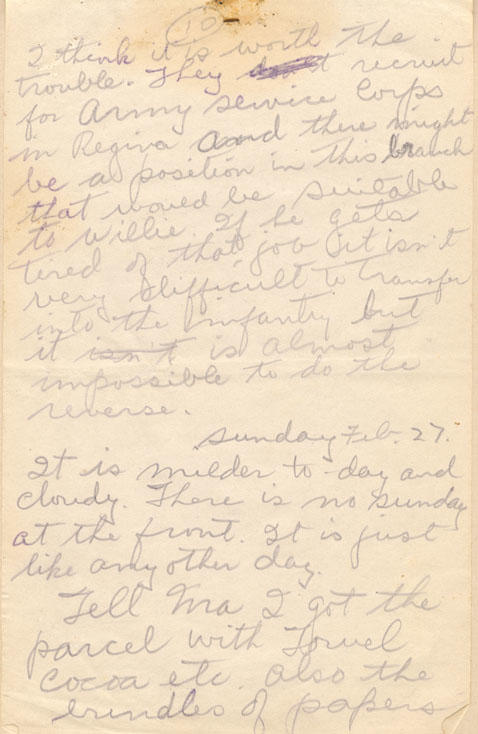 10
I think it is worth the
trouble. They recruit
for Army Service Corps
in Regina and there might
be a position in this branch
that would be suitable
to Willie. If he gets
tired of that job it isn't
very difficult to transfer
into the infantry but
it isn't is almost
impossible to do the
reverse.
Sunday Feb. 27.
It is milder to-day and
cloudy. There is no Sunday
at the front. It is just
like any other day.
Tell Ma I got the
parcel with Towel
Cocoa etc. also the
bundles of papers